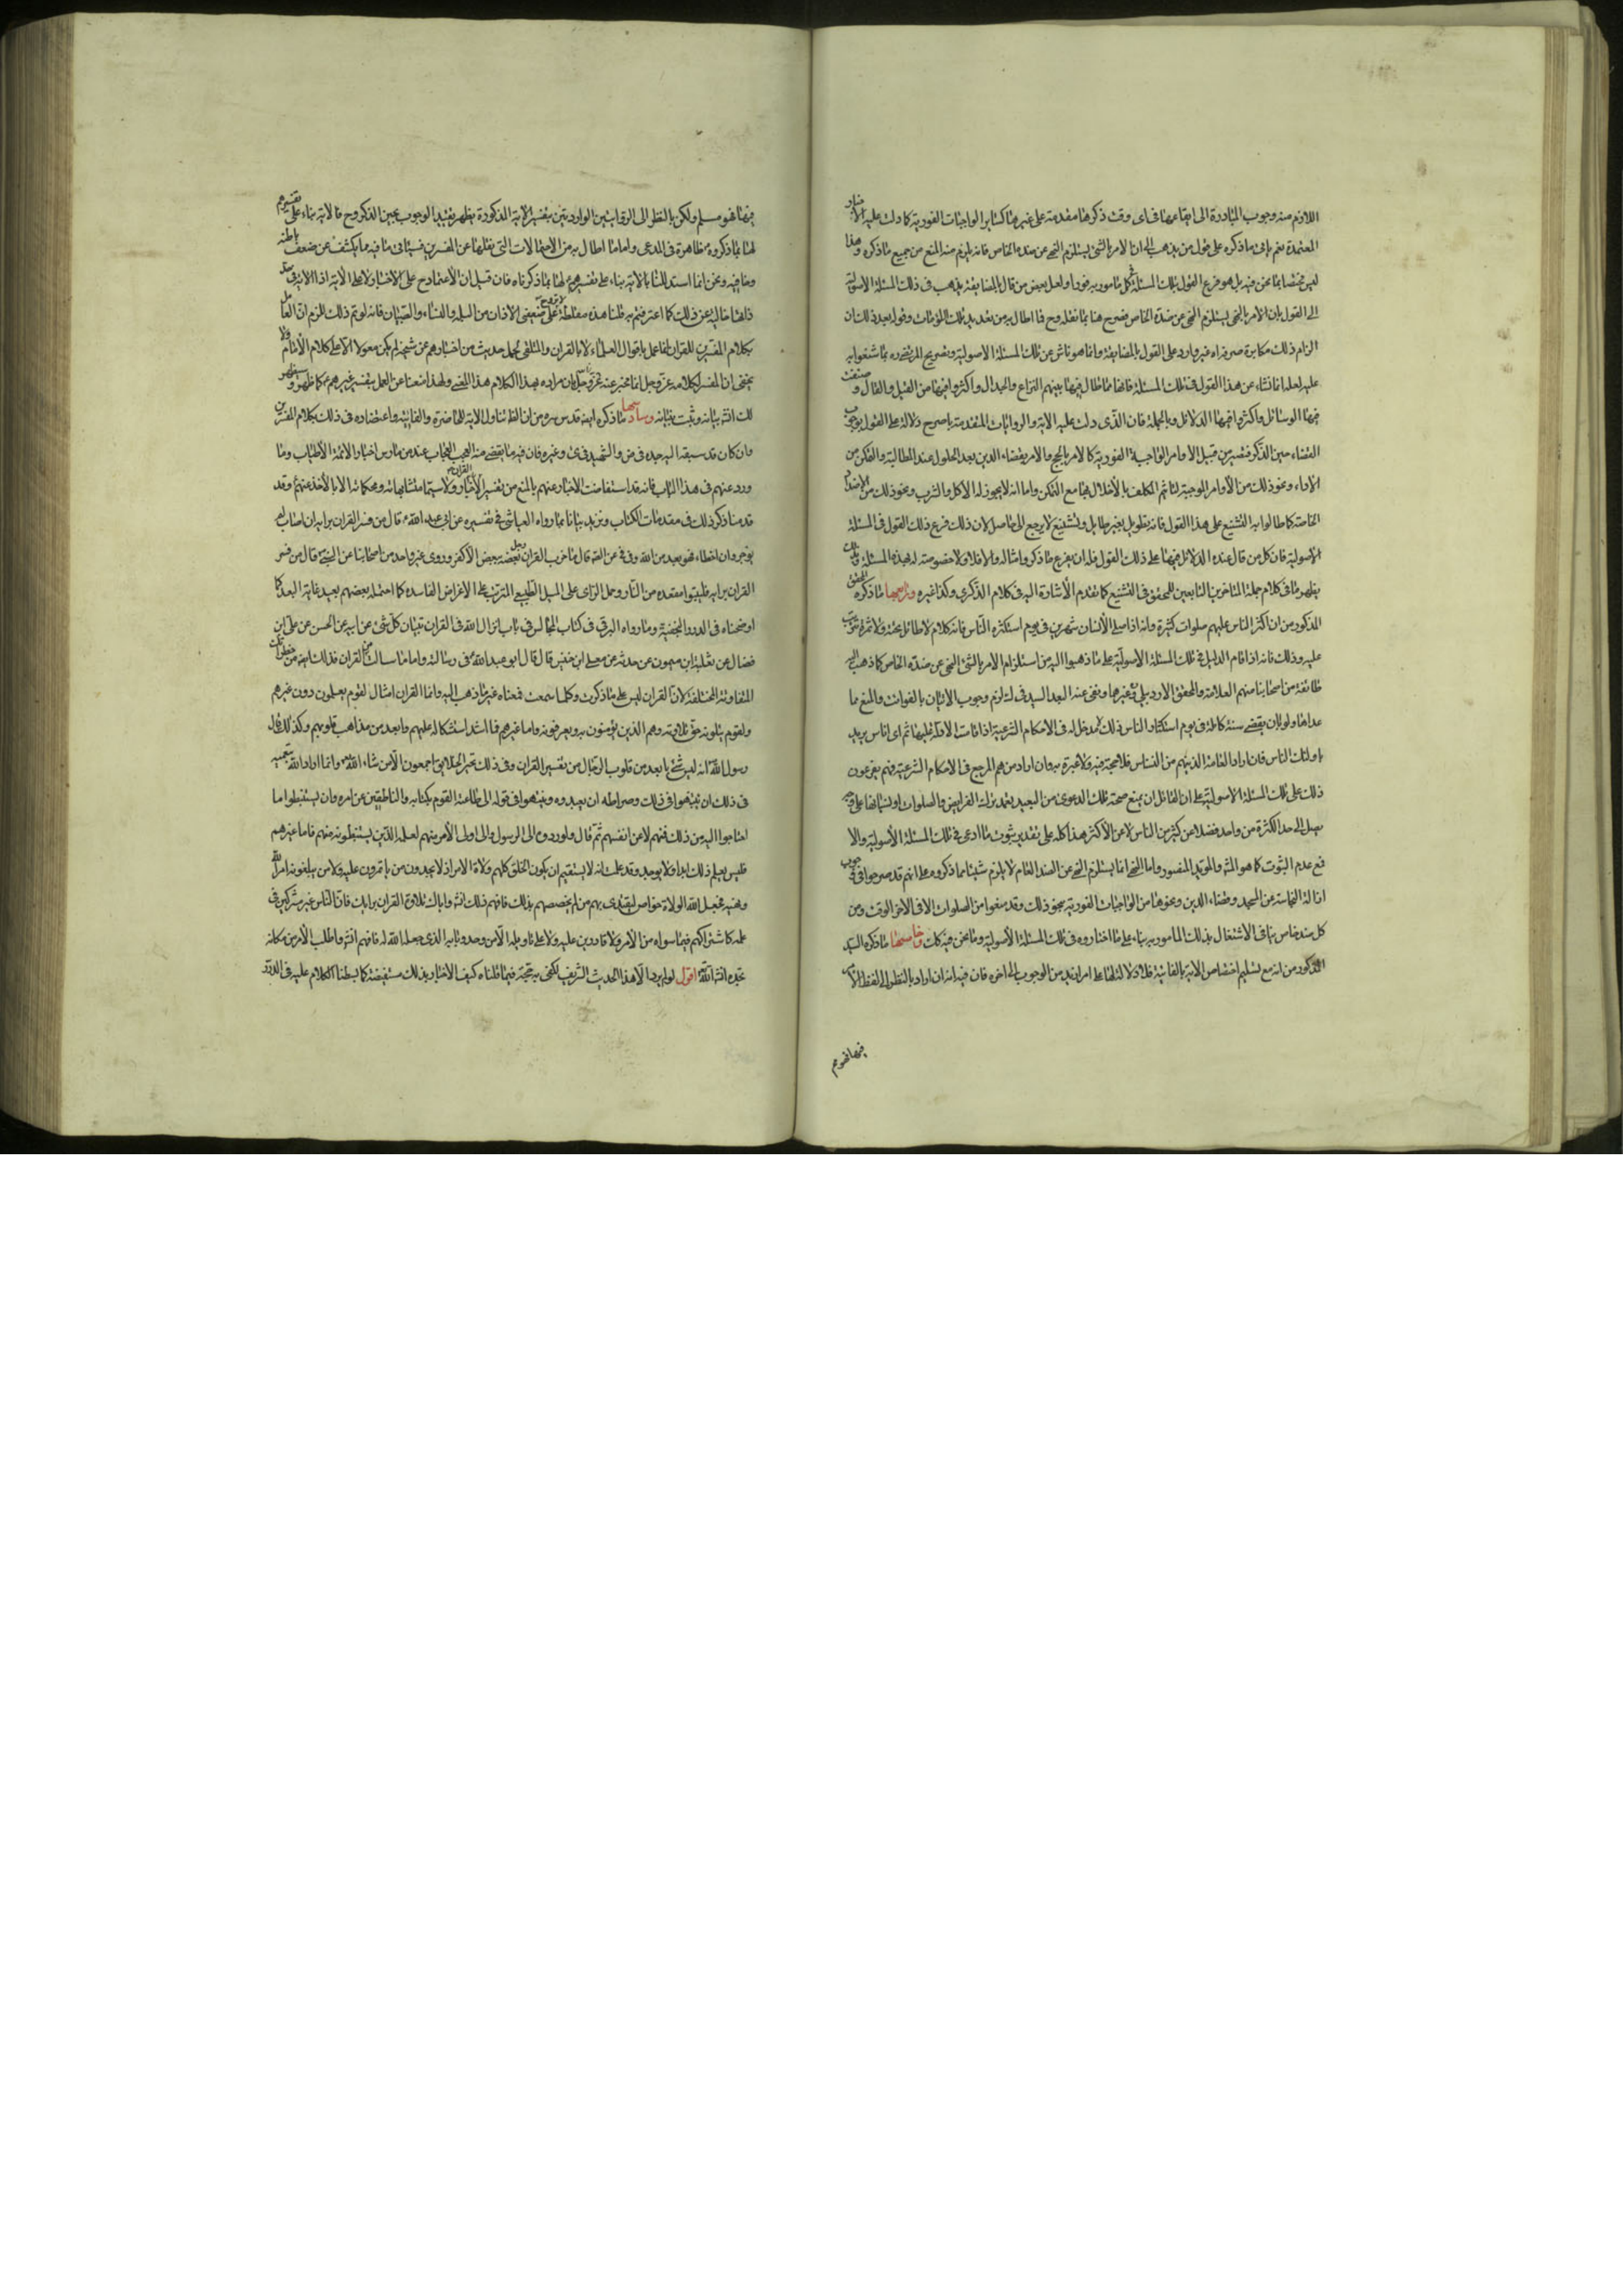 اللازم منه وجوب المبادرة الى ايقاعها فى اى وقت ذكرها مقدمة على غيرها كساير الواجبات الفورية كما دلت عليه الاخبار
المعتمدة نعم يأتى ما ذكره على قول من يذهب الى ان الامر بالشئ يستلزم النهى عن ضده الخاص فانه يلزم منه المنع من جميع ما ذكره وهذا
ليس مختصا بما نحن فيه بل هو فرع القول بتلك المسئلة فى كل مامور به فورا ولعل بعض من قال بالمضايقة يذهب فى ذلك المسئلة الاصولية
الى القول بان الامر بالشى يستلزم النهى عن ضده الخاص فصرح هنا بما نقله وح فما اطال به من تعديد تلك وقوله بعد ذلك ان
الزام ذلك مكابرة غير وارد على القول بالمضايقة وانما هو ناش عن تلك المسئلة الاصولية وتصريح المرتضى ره بما شنعوا به
عليه لعله انما نشاء عن هذا القول فى تلك المسئلة فانها مما طال فيها بينهم النزاع والجدال واكثروا فيها من القيل والقال وصنفت
فيها الرسائل واكثروا فيها الدلائل وبالجملة فان الذى دلت عليه الاية والروايات المتقدمة باصرح دلالة هو القول بوجوب
القضاء حين الذكر فتصير من قبيل الاوامر الواجبة الفورية كالامر بالحج والامر بقضاء الدين بعد الحلول عند المطالبة والتمكن من
الاداء ونحو ذلك من الأوامر الموجبة لتاثم المكلف بالأخلال بها مع التمكن واما انه لا يجوز له الاكل والشرب ونحو ذلك من الاضداد
الخاصة كما طالوا به التشنيع على هذا القول فانه تطويل بغير طايل وتشنيع لا يرجع الى حاصل لان ذلك فرع ذلك القول فى المسئلة
الاصولية فان كل من قال عنده الدلائل فيها على ذلك القول فله ان يفرع ما ذكر وامثاله والا فلا ولا خصوصية له بهذه المسئلة وبذلك
يظهر ما فى كلام جملة المتاخرين التابعين للمحقق فى التشنيع كما تقدم الأشارة اليه فى كلام الذكرى وكذا غيره ورابعها ما ذكره المحقق
المذكور من ان اكثر الناس عليهم صلوات كثيرة وانه اذا صلى الأنسان شهرين فى يوم استكثره الناس فانه كلام لا طائل تحته ولا ثمرة تترتب
عليه وذلك فانه اذا قام الدليل فى تلك المسئلة الاصولية على ما ذهبوا اليه من استلزام الامر بالشئ النهى عن ضده الخاص كما ذهب اليه
طائفة من اصحابنا منهم العلامة والمحقق الاردبيلى وغيرهما ونفى عنه البعد السيد فى ك لزم وجوب الاتيان بالفوائت والمنع مما
عداها ولو بان يقضى سنة كاملة فى يوم استكثار الناس ذلك لا مدخل له فى الاحكام الشرعية اذا قامت الادلة عليها ثم اى اناس يريد
باولئك الناس فان اراد العامة الذينهم من النسناس فلا حجة فيه ولا عبرة به وان اراد من هم المرجع فى الاحكام الشرعية فهم يفرعون
ذلك على تلك المسئلة الاصولية على ان القائل ان يمنع صحة تلك الدعوى من البعيد تعمد ترك الفرايض والصلوات او نسيانها على وجه
يصل الى حد الكثرة من واحد فضلا عن كثير من الناس لا عن الأكثر هذا كله على تقدير ثبوت ما ادعى فى تلك المسئلة الأصولية والا
فمع عدم الثبوت كما هو المش والمؤيد المنصور واما النهى انما يستلزم النهى عن الضد العام لا يلزم شيئا مما ذكروه على انهم قد صرحوا فى وجوب
ازالة النجاسة عن المسجد وقضاء الدين ونحوها من الواجبات الفورية بنحو ذلك وقد منعوا من الصلوات الا فى الاخر الوقت ومن
كل ضد خاص ينافى الاشتغال بذلك المامور به بناء على ما اختاروه فى تلك المسئلة الأصولية وما نحن فيه كلت وخامسها ما ذكره السيد
المذكور من انه مع تسليم اختصاص الاية بالفائتة فلا دلالة لها على امر ازيد من الوجوب الى اخره فان فيه انه ان اراد بالنظر الى لفظ الأمر
فيها فهو م
فيها فهو مسلم ولكن بالنظر الى الروايتين الواردتين بتفسير الاية المذكورة يظهر تقييد الوجوب بحين الذكر وح فالاية بناء على تفسيرهم
لها بما ذكروه ظاهرة فى المدعى واما ما اطال به من الاحتمالات التى نقلها عن المفسرين فسياتى ما فيه مما يكشف عن ضعف باطنه
وخافيه ونحن انما استدللنا بالاية بناء على تفسيرهم لها بما ذكرناه فان قيل ان الأعتماد ح على الأخبار لا على الأية اذ الاية فى حد
ذاتها خالية عن ذلك كما اعترفتم به قلنا هذه مغلطة لا تروج على ضعيفى الاذهان من البله والنساء والصبيان فانه لو تم ذلك للزم ان العامل
بكلام المفسرين للقران انما عمل باقوال العلماء لا بالقران والمتلقى لمجمل حديث من اخبارهم عن شيخه لم يكن معولا الا على كلام الأنام ولا
يخفى ان المفسر لكلامه عز وجل انما مخبر عنه عز وجل بان مراده بهذا الكلام هذا المعنى ولهذا منعنا عن العمل بتفسير غيرهم كما ظهر وسيظهر
لك انش بيانه وثبت بنيانه وسادسها ما ذكره ايضا قدس سره من ان الظ تناول الاية للحاضرة والفائتة واعتضاده فى ذلك بكلام المفسرين
وان كان قد سبقه اليه جده فى ض والشهيد فى كرى وغيره فان فيه ما يقضى منه العجب العجاب عند من مارس اخبار الائمة الأطياب وما
ورد عنهم فى هذا الباب فانه قد استفاضت الاخبار عنهم بالمنع من تفسير القران الا بالأخبار ولا سيما متشابهاته ومحكماته الا بالأخذ عنهم وقد
قدمنا ذكر ذلك فى مقدمات الكتاب ونزيد بيانا بما رواه العياشى فى تفسيره عن ابى عبد الله ع قال من فسر القران برايه ان اصاب لم
يوجر وان اخطاء فهو بعيد من الله وفى فى عن الله قال ما ضرب القران رجل بعضه ببعض الا كفر وروى غير واحد من اصحابنا عن النبى ص قال من فسر
القران برايه فليتبوا مقعده من النار وحمل الراى على الميل الطبيعى المترتب على الاغراض الفاسده كما احتمله بعضهم بعيد غاية البعد كما
اوضحناه فى الدرر النجفية وما رواه البرقى فى كتاب المحاسن فى باب انزال الله فى القران تبيان كل شئ عن ابيه عن الحسن عن على ابن
فضال عن ثعلبة ابن ميمون عن حدثه عن معلى ابن خنيس قال قال ابو عبد الله ع فى رسالة واما ما سالت من القران فذلك ايضا من خطراتك
المتفاوتة المختلفة لان القران ليس على ما ذكرت وكلما سمعت فمعناه غير ما ذهب اليه وانما القران امثال لقوم يعلمون دون غيرهم
ولقوم يتلونه حق تلاوته وهم الذين يؤمنون به ويعرفونه واما غيرهم فما اشد استشكاله عليهم وابعد من مذاهب قلوبهم وكذلك قال
رسول الله ص انه ليس شئ بابعد من قلوب الرجال من تفسير القران وفى ذلك تحير الخلايق اجمعون الا من شاء الله وانما اراد الله بتعميته
فى ذلك ان ينتهوا فى ذلك وصراطه ان يعبدوه وينتهوا فى قوله الى طاعة القوم بكتابه والناطقين عن امره وان يستنبطوا ما
احتاجوا اليه من ذلك منهم لا عن انفسهم ثم قال ولو ردوه الى الرسول والى اولى الأمر منهم لعلمه الذين يستنبطونه منهم فاما غيرهم
فليس يعلم ذلك ابدا ولا يوجد وقد علمت انه لا يستقيم ان يكون الخلق كلهم ولاة الامر اذ لا يجدون من ياتمرون عليه ولا من يبلغونه امر الله
ونهيه فجعل الله الولاة خواص ليقتدى بهم من لم يخصصهم بذلك فافهم ذلك انش واياك وتلاوة القران برايك فان الناس غير مشتركين فى
علمه كاشتراكهم فيما سواه من الأمر ولا قادرين عليه ولا على تاويله الا من حده وبابه الذى جعله الله له فافهم انش واطلب الأمر من مكانه
تجده انش الله اقول لو لم يرد الا هذا الحديث الشريف لكفى به حجة فيما قلناه كيف الاخبار بذلك مستفيضة كما بسطنا الكلام عليه فى الدرر